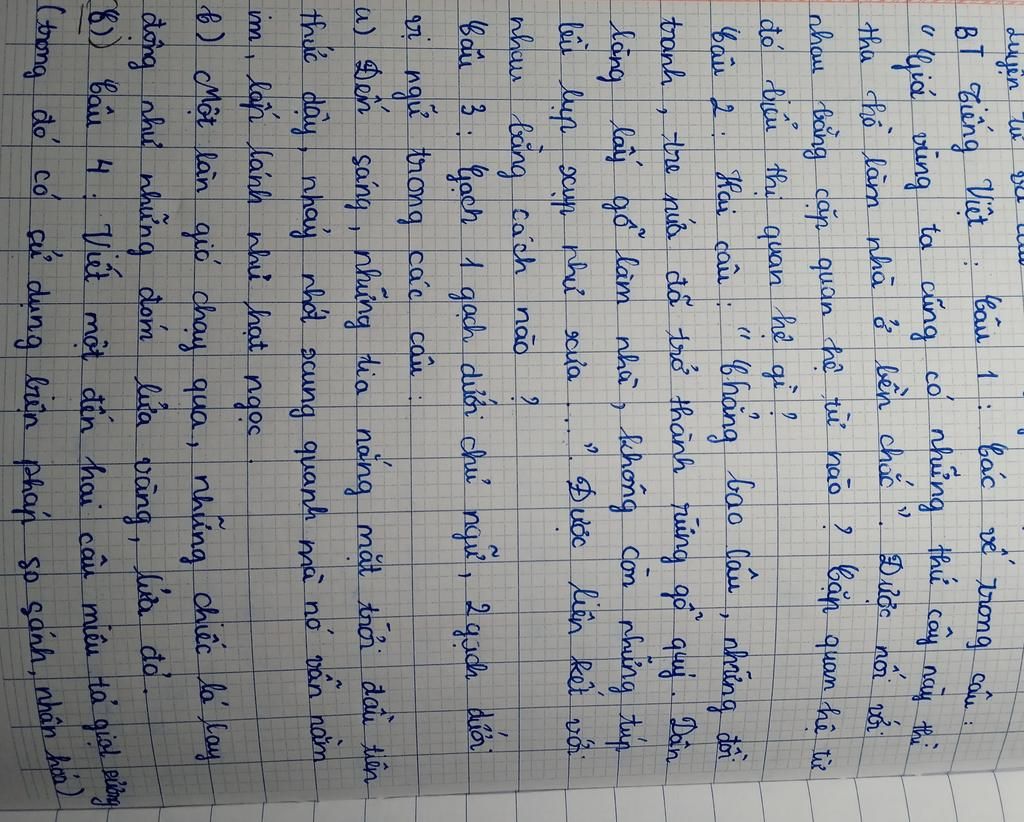 BT Tiếng Việt: Câu 1: Các vế trong câu:
"Giá vùng ta cũng có những thứ cây này thì
tha hồ làm nhà ở bền chắc". Được nối với
nhau bằng cặp quan hệ từ nào? Cặp quan hệ từ
đó biểu thị quan hệ gì?
Câu 2: Hai câu: "Chẳng bao lâu, những đồi
tranh, tre nứa đã trở thành rừng gỗ quý. Dân
làng lấy gỗ làm nhà, không còn những túp
lều lụp xụp như xưa...". Được liên kết với
nhau bằng cách nào?
Câu 3: Gạch 1 gạch dưới chủ ngữ, 2 gạch dưới
vị ngữ trong các câu:
a) Đến sáng, những tia nắng mặt trời đầu tiên
thức dậy, nhảy nhót xung quanh mà nó vẫn nằm
im, lấp lánh như hạt ngọc.
b) Một làn gió chạy qua, những chiếc lá lay
động như những đóm lửa vàng, lửa đỏ.
B) Câu 4: Viết một đến hai câu miêu tả giọt sương
(trong đó có sử dụng biện pháp so sánh, nhân hóa)